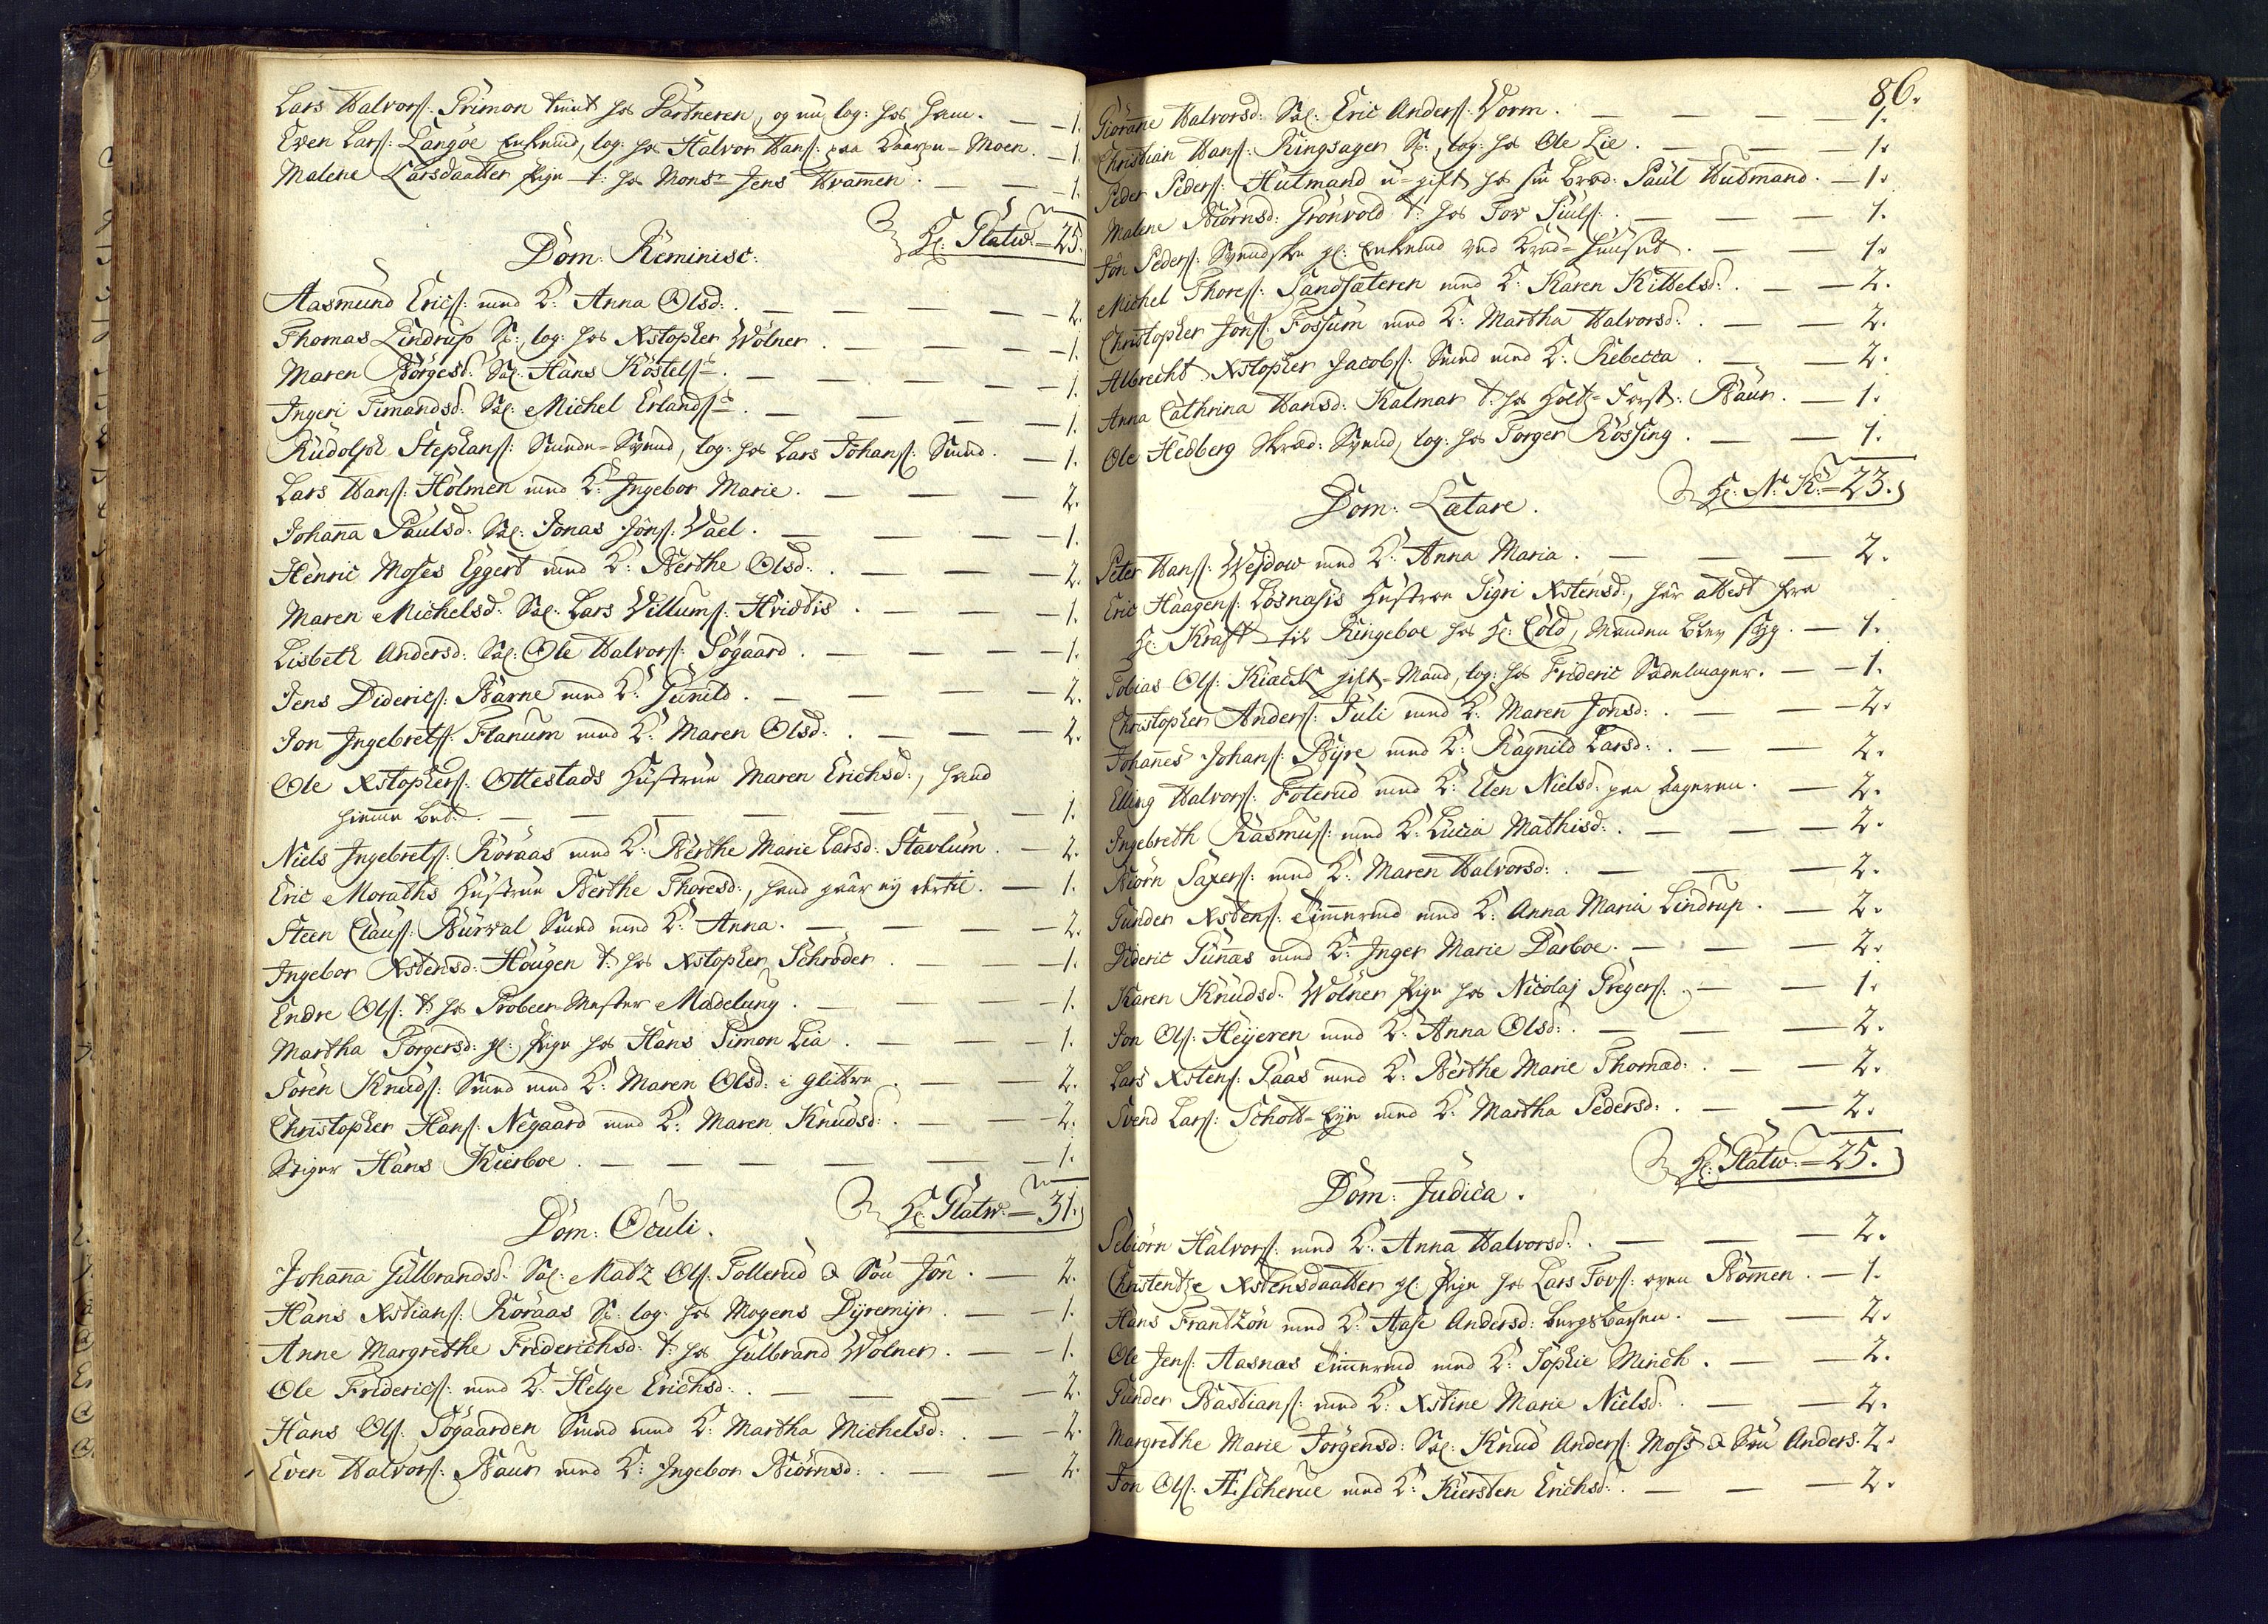 Lars Halvors: Primon tient hos Partneren, og nu log: hos ham. — 1.
Even Lars: Langøe Enkemd, log: hos Halvor Hans: paa Moen. — 1.
Malene Larsdaatter Pige t: hos Monsr Jens Kramer. — 1.
Hr: Platw: = 25.
Dom: Reminisc:
Aasmund Erics: med K: Anna Olsd: — 2.
Thomas Lindrup S:, log: hos Xstopher Wølner. — 1.
Maren Børgesd: Sal: Hans Köstels — 1.
Ingeri Simandsd: Sal: Michel Erlands — 1.
Rudolph Stephans: Svend, log: hos Lars Johans: Smed. — 1.
Lars Hans: Holmen med K: Ingebor Marie. — 2.
Johanna Paulsd: Sal: Jonas Jons: Vael. — 1.
Henric Moses Eggert med K: Berthe Olsd: — 2.
Maren Michelsd: Sal: Lars Villums: Hvidtis. — 1.
Lisbeth Andersd: Sal: Ole Halvors: Søgaard. — 1.
Jens Diderics: Barne med K: Gunild. — 2.
Jon Ingebrets: Flanum med K: Maren Olsd: — 2.
Ole Xstophers: Ottestads Hustrue Maren Erichsd:, hand
hiemme — 1.
Niels Ingebrets: Røraas med K: Berthe Marie Larsd: Stavlum. — 2.
Eric Moraths Hustrue Berthe Thoresd:, hand gaar ey dertil. — 1.
Steen Claus: Burval Smed med K: Anna. — 2.
Ingebor Xstensd: Hougen t: hos Xstopher Schrøder. — 1.
Endre Ols: t: hos Probeer Mester Madelung. — 1.
Martha Torgersd: gl: Pige hos Hans Simon Lia. — 1.
Søren Knuds: Smed med K: Maren Olsd: i Glittre. — 2.
Christopher Hans: Negaard med K: Maren Knudsd: — 2.
Stiger Hans Kierboe. — 1.
Hr: Platw: = 31.
Dom: Oculi.
Johanna Gulbrandsd: Sal: Matz Ols: Tollerud & Søn Jon. — 2.
Hans Xstians: Røraas S: log: hos Mogens Dyremyr. — 1.
Anne Margrethe Friderichsd: t: hos Gulbrand Wølner. — 1.
Ole Friderics: med K: Helge Erichsd: — 2.
Hans Ols: Søgaarden Smed med K: Martha Michelsd: — 2.
Even Halvors: Baun med K: Ingebor Biørnsd: — 2.
86.
Giorane Halvorsd: Sal: Eric Anders: Vorm. — 1.
Christian Hans: Ringsager S:, log: hos Ole Lie. — 1.
Peder Peders: Hutmand u-gift hos sin Brod: Paul Hutmand. — 1.
Malene Biørnsd: Grønvold t: hos Tov Siuls: — 1.
Jon Peders: gl: Enkemd ved Huuset. — 1.
Michel Thores: Sandsæteren med K: Karen Kittelsd: — 2.
Christopher Jons: Fossum med K: Martha Halvorsd: — 2.
Albrecht Xstopher Jacobs: Smed med K: Rebecca. — 2.
Anna Cathrina Hansd: Kalmar t: hos Holtz-Forst: Baur. — 1.
Ole Hedberg Skræd: Svend, log: hos Torger Røssing. — 1.
Hr: N: K: = 23.
Dom: Lætare.
Peter Hans: Wesdow med K: Anna Maria. — 2.
Eric Haagens: Løsnæsis Hustroe Sigri Xstensd:, har attest fra
Hr: Kraft til Ringeboe hos Hr: Cold, Manden blev syg. — 1.
Tobias Ols: Kiack gift-Mand, log: hos Frideric Sadelmager. — 1.
Christopher Anders: Juli med K: Maren Jonsd: — 2.
Johannes Johans: Byre med K: Ragnild Larsd: — 2.
Elling Halvors: Foterud med K: Elen Nielsd: paa Ageren. — 2.
Ingebreth Rasmus: med K: Lucia Mathisd: — 2.
Biørn Saxers: med K: Maren Halvorsd: — 2.
Gunder Xstens: Timermd med K: Anna Maria Lindrup. — 2.
Dideric Gunnas med K: Inger Marie Darboe. — 2.
Karen Knudsd: Wølner Pige hos Nicolaj Gregers: — 1.
Jon Ols: Heyeren med K: Anna Olsd: — 2.
Lars Xstens: Paas med K: Berthe Marie Thomæd: — 2.
Svend Lars: Schott-Eye med K: Martha Pedersd: — 2.
Hr: Platw: = 25.
Dom: Judica.
Sebiørn Halvors: med K: Anna Halvorsd: — 2.
Christentze Xstensdaatter gl: Pige hos Lars Tovs: oven Bommen. — 1.
Hans Frantzøn med K: Aase Andersd: Bergsbachen. — 2.
Ole Jens: Aasnæs Timermd med K: Sophie Minch. — 2.
Gunder Bastians: med K: Xstine Marie Nielsd: — 2.
Margrethe Marie Jørgensd: Sal: Knud Anders: Moss & Søn Anders. 2.
Jon Ols: Æscherue med K: Kiersten Erichsd: — 2.